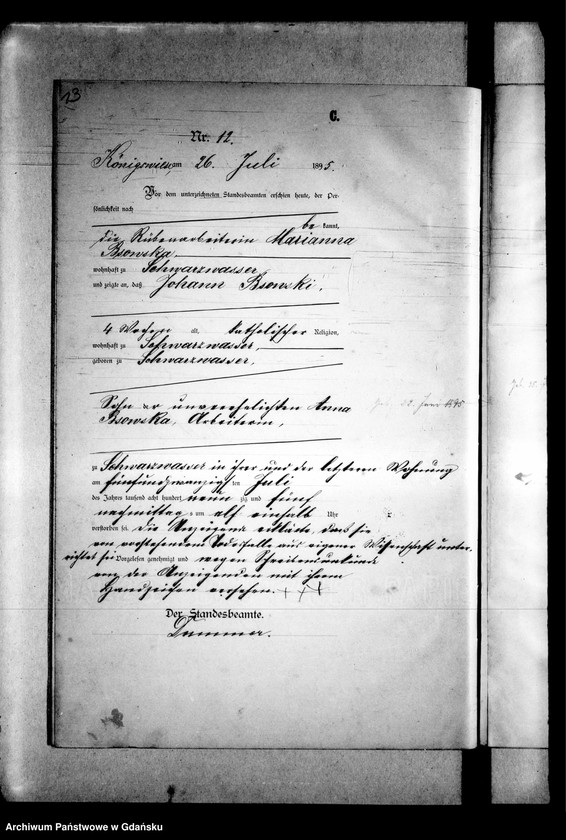 13
C.
Nr. 12.
Königswiese am 26. Juli 1895.
Vor dem unterzeichneten Standesbeamten erschien heute, der Per-
sönlichkeit nach
be kannt,
die Rübenarbeiterin Marianna
Bsowska,
wohnhaft zu Schwarzwasser,
und zeigte an, daß Johann Bsowski,
4 Wochen alt, katholischer Religion,
wohnhaft zu Schwarzwasser,
geboren zu Schwarzwasser,
Sohn der unverehelichten Anna
Bsowska, Arbeiterin,
zu Schwarzwasser in ihrer und der letzteren Wohnung
am fünfundzwanzigsten Juli
des Jahres tausend acht hundert neun zig und fünf
nachmittags um elf einhalb Uhr
verstorben sei. Die Anzeigende erklärte, daß sie
von vorstehendem Todesfalle aus eigener Wissenschaft unter-
richtet sei Vorgelesen genehmigt und wegen Schreibensunkunde
von der Anzeigenden mit ihrem
Handzeichen versehen. +++
Der Standesbeamte.
Archiwum Państwowe w Gdańsku